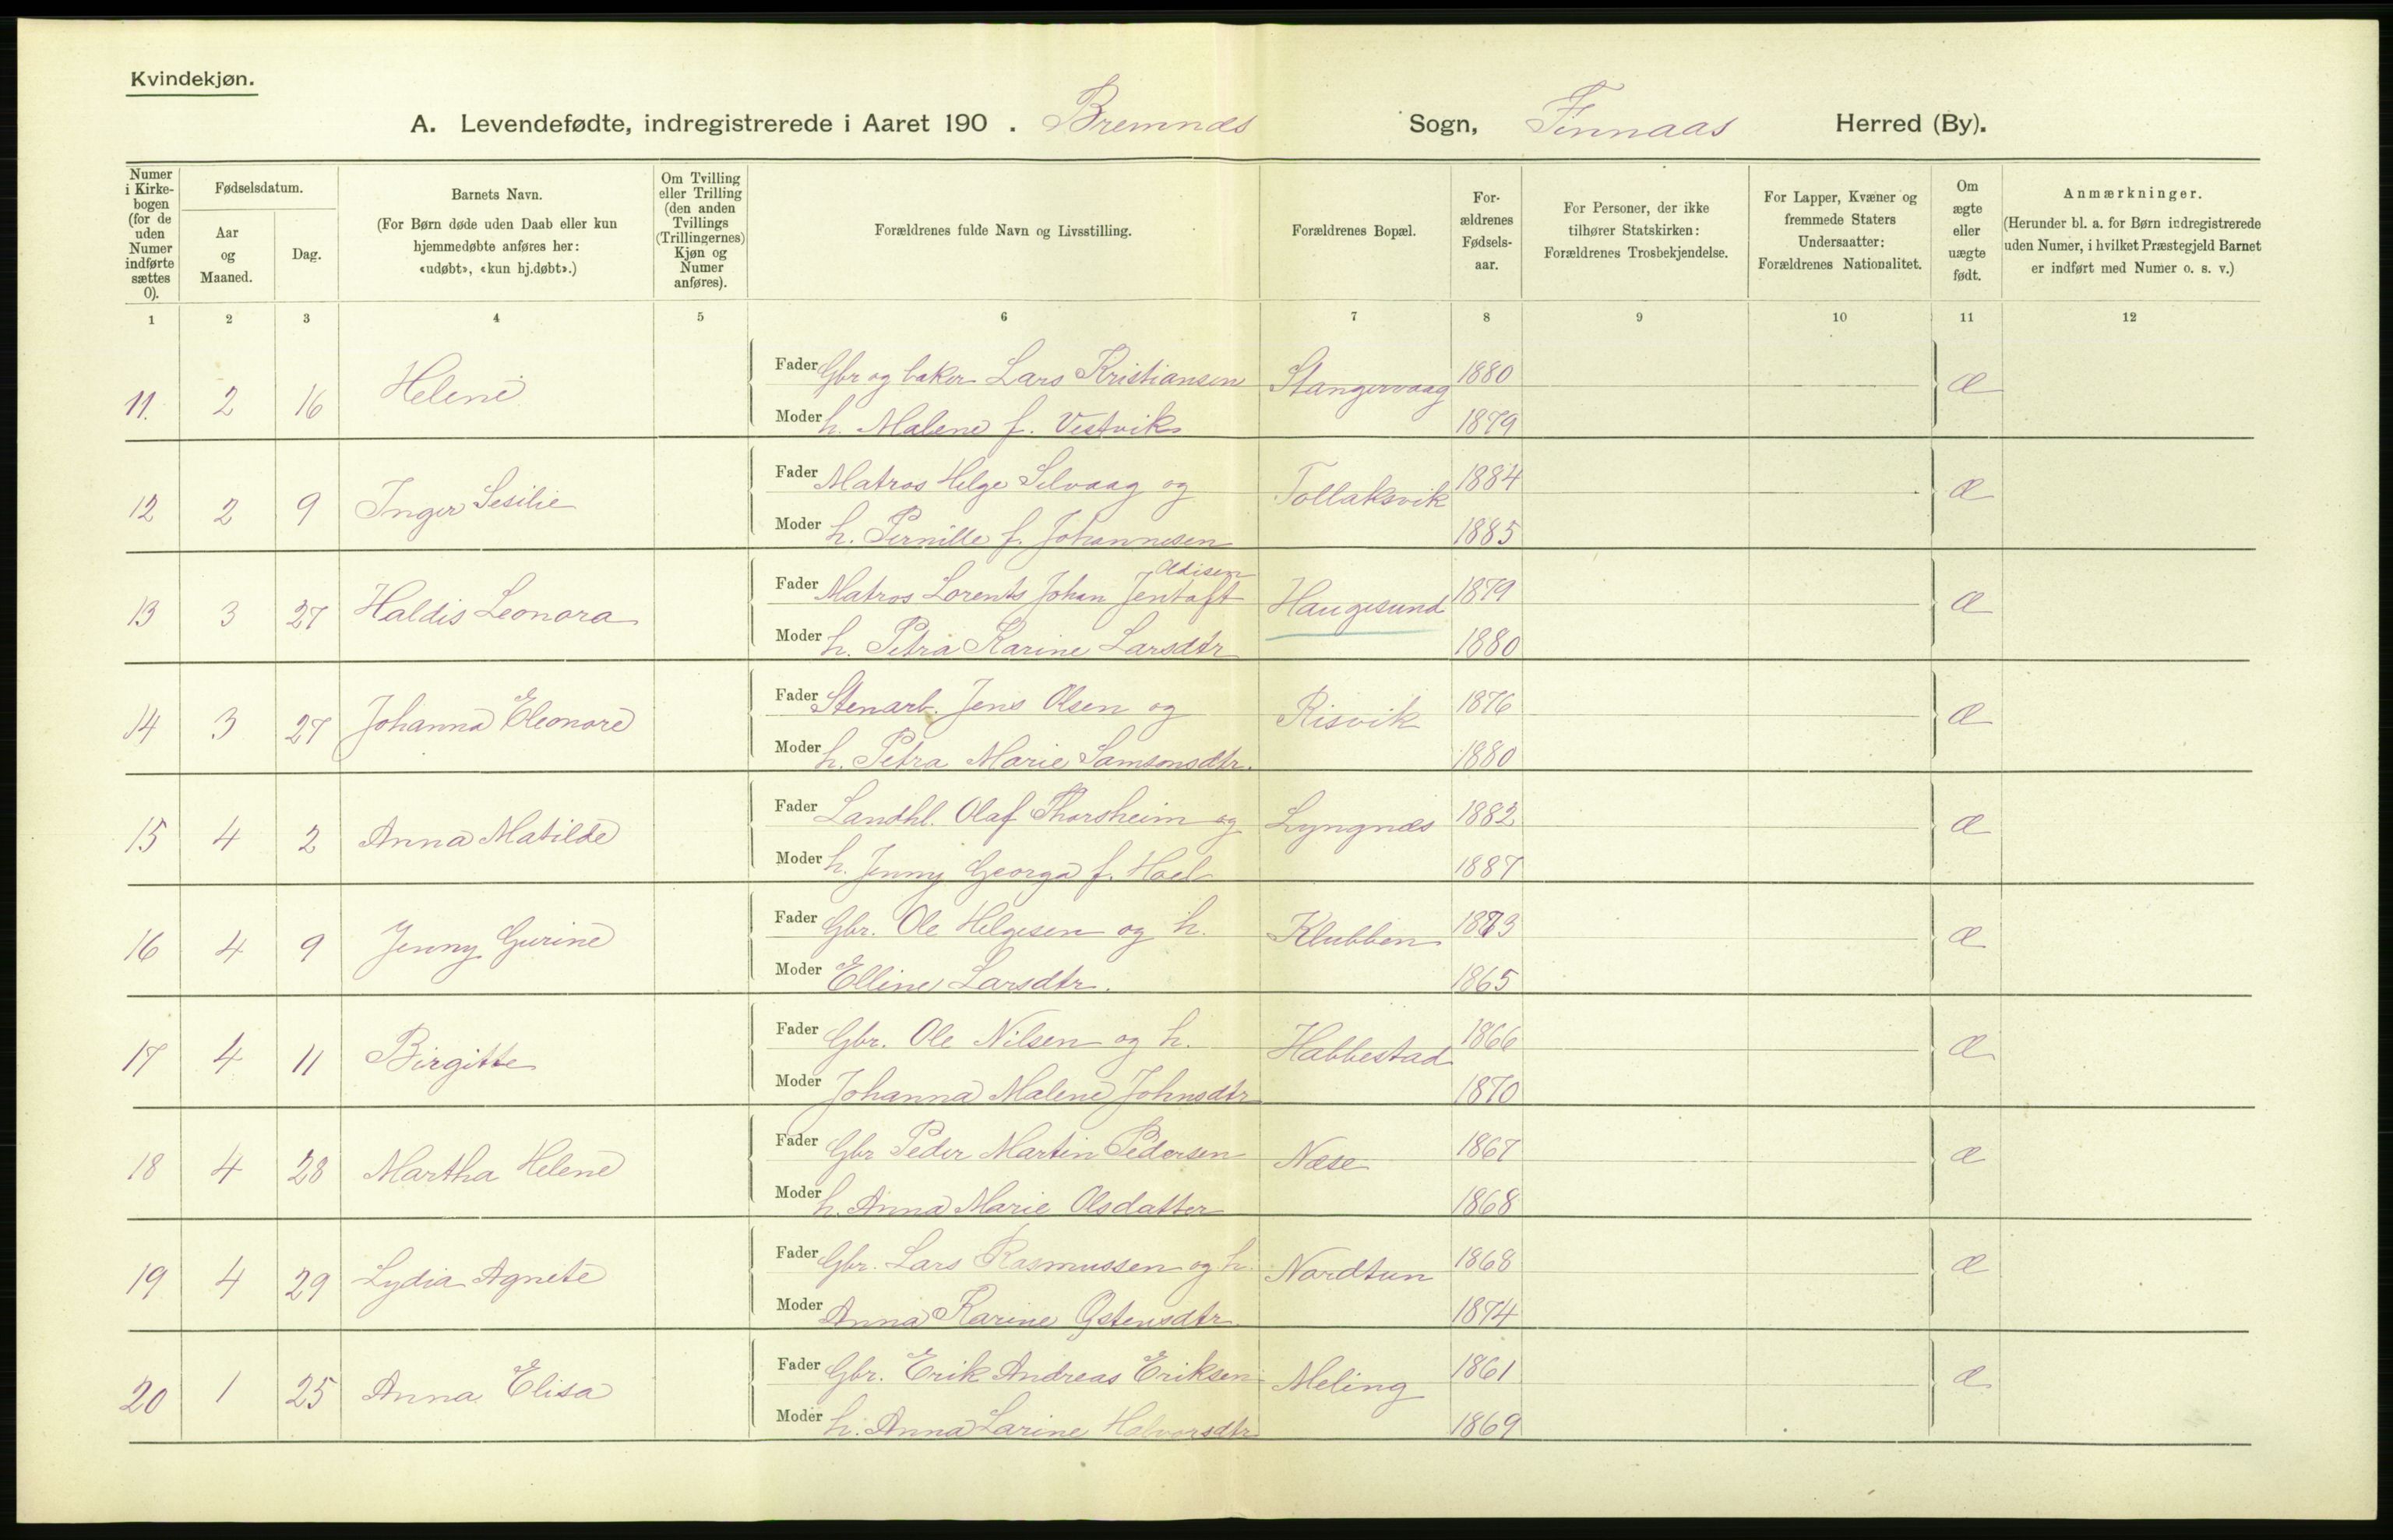 Kvindekjøn.
A. Levendefødte, indregistrerede i Aaret 190 . Bremnæs Sogn, Finnaas Herred (By).
Numer i Kirkebogen (for de uden Numer indførte sættes 0).
Fødselsdatum.
Aar og Maaned.
Dag.
Barnets Navn.
(For Børn døde uden Daab eller kun hjemmedøbte anføres her: «udøbt», «kun hj.døbt».)
Om Tvilling eller Trilling (den anden Tvillings (Trillingernes) Kjøn og Numer anføres).
Forældrenes fulde Navn og Livsstilling.
Forældrenes Bopæl.
Forældrenes Fødselsaar.
For Personer, der ikke tilhører Statskirken: Forældrenes Trosbekjendelse.
For Lapper, Kvæner og fremmede Staters Undersaatter: Forældrenes Nationalitet.
Om ægte eller uægte født.
Anmærkninger.
(Herunder bl. a. for Børn indregistrerede uden Numer, i hvilket Præstegjeld Barnet er indført med Numer o. s. v.)
1 2 3 4 5 6 7 8 9 10 11 12
11. 2 16 Helene Fader Gbr og baker Lars Kristiansen Stangervaag 1880 Æ
Moder h. Malene f. Vestvik 1879
12 2 9 Inger Sesilie Fader Matros Helge Selvaag og Tollaksvik 1884 Æ
Moder h. Pernille f. Johannesen 1885
13 3 27 Haldis Leonora Fader Matros Lorents Johan Jentoft Haugesund 1879 Æ
Moder h. Petra Karine Larsdtr 1880
14 3 27 Johanna Eleonore Fader Stenarb. Jens Olsen og Risvik 1876 Æ
Moder h. Petra Marie Samsonsdtr. 1880
15 4 2 Anna Matilde Fader Landhl. Olaf Thorsheim og Lyngnæs 1882 Æ
Moder h. Jenny Georga f. Hoel 1887
16 4 9 Jenny Gurine Fader Gbr. Ole Helgesen og h. Klubben 1873 Æ
Moder Elline Larsdtr. 1865
17 4 11 Birgitte Fader Gbr. Ole Nilsen og h. Habbestad 1866 Æ
Moder Johanna Malene Johnsdtr 1870
18 4 28 Martha Helene Fader Gbr Peder Martin Pedersen Næse 1867 Æ
Moder h. Anna Marie Olsdatter 1868
19 4 29 Lydia Agnete Fader Gbr. Lars Rasmussen og h. Nordtun 1868 Æ
Moder Anna Karine Østensdtr 1874
20 1 25 Anna Elisa Fader Gbr. Erik Andreas Eriksen Meling 1861 Æ
Moder h. Anna Larine Halvorsdtr 1869